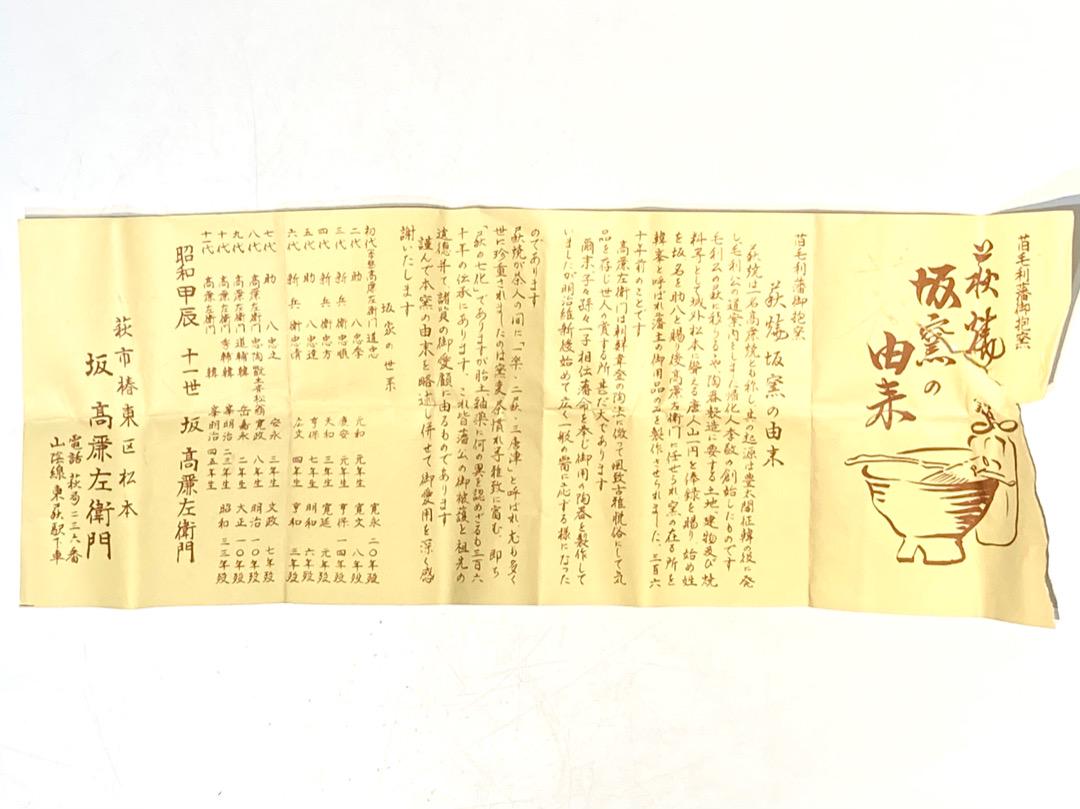 旧毛利藩御抱窯
萩焼
坂窯の
由来
旧毛利藩御抱窯
萩焼坂窯の由来
萩焼は一名高麗焼とも称し其の起源は豊太閤征韓の役に発
し毛利公の道案内をしました帰化人李敬の創始したものです
毛利公の萩に移るるや陶器製造に要する土地、建物及び焼
料等として城外松本に聳える唐人山一円と俸録を賜り始め姓
を坂名を助八と賜り後高麗左衛門に任せられ窯の在る所を
韓峯と呼ばれ藩主の御用品のみを製作させられました、三百六
十年前のことです
高麗左衛門は朝鮮韋登の陶法に倣って風致古雅脱俗にして気
品を存じ世人の賞する所甚だ大であります
爾来、子々孫々一子相伝藩命を奉じ御用の陶器を製作して
いましたが明治維新後始めて広く一般の需に応ずる様になった
のであります
萩焼が茶人の間に「一楽、二萩、三唐津」と呼ばれ、尤も多く
世に珍重されましたのは窯変、茶慣れ等雅致に富む、即ち
「萩の七化」でありますが胎土釉薬に何の異を認めざるも三百六
十年の伝承にあります。これ皆藩公の御被護と祖先の
遺徳并て諸賢の御愛顧に由るものであります
謹んで本窯の由来を略述し併せて御愛用を深く感
謝いたします
坂家の世系
初代 高麗左衛門 道忠 寛永 二〇年歿
二代 助八 忠季 元和 元年生 寛文 八年歿
三代 新兵衛 忠順 慶安 元年生 享保 一四年歿
四代 新兵衛 忠方 天和 三年生 寛延 元年歿
五代 助八 忠達 享保 七年生 明和 六年歿
六代 新兵衛 忠清 元文 四年生 享和 三年歿
七代 助八 忠之 安永 三年生 文政 七年歿
八代 高麗左衛門 忠陶 寛政 八年生 明治 一〇年歿
九代 高麗左衛門 道輔 韓岳 嘉永 二年生 大正 一〇年歿
十代 高麗左衛門 秀輔 韓峯 明治 二三年生 昭和 三三年歿
十一代 高麗左衛門 韓峯 明治 四五年生
昭和甲辰 十一世 坂 高麗左衛門
萩市椿東区松本
坂 高麗左衛門
電話 萩局二三六番
山陰線東萩駅下車